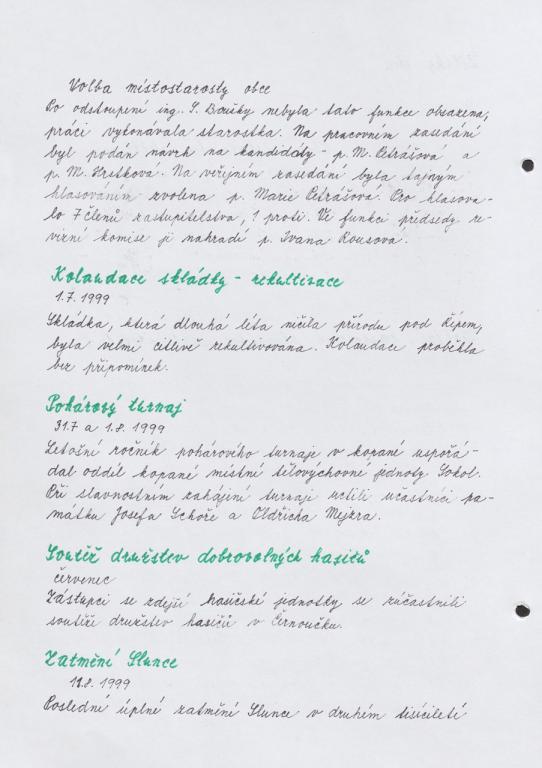 Volba místostarosty obce
Po odstoupení ing. S. Boušky nebyla tato funkce obsazena,
práci vykonávala starostka. Na pracovním zasedání
byl podán návrh na kandidáty - p. M. Petrášová a
p. M. Hrstková. Na veřejném zasedání byla tajným
hlasováním zvolena p. Marie Petrášová. Pro hlasova-
lo 7 členů zastupitelstva, 1 proti. Ve funkci předsedy re-
vizní komise ji nahradí p. Ivana Rousová.
Kolaudace skládky - rekultivace
1.7.1999
Skládka, která dlouhá léta ničila přírodu pod Řípem,
byla velmi citlivě rekultivována. Kolaudace proběhla
bez připomínek.
Pohárový turnaj
31.7 a 1.8.1999
Letošní ročník pohárového turnaje v kopané uspořá-
dal oddíl kopané místní tělovýchovné jednoty Sokol.
Při slavnostním zahájení turnaje uctili účastníci pa-
mátku Josefa Schoře a Oldřicha Mejzra.
Soutěž družstev dobrovolných hasičů
červenec
Zástupci se zdejší hasičské jednotky se zúčastnili
soutěže družstev hasičů v Černoučku.
Zatmění Slunce
11.8.1999
Poslední úplné zatmění Slunce v druhém tisíciletí